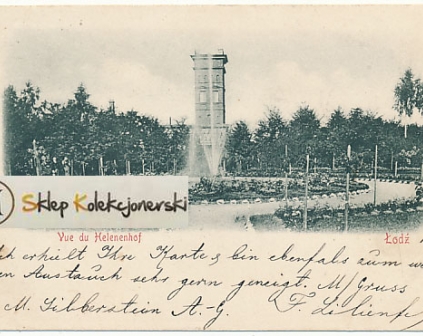 Sklep Kolekcjonerski
Vue du Helenenhof
Łodź
erhielt Ihre Karte & bin ebenfalls zum
Austausch sehr gern geneigt. M/Gruss
M. Silberstein A.-G. F. Lilienfe